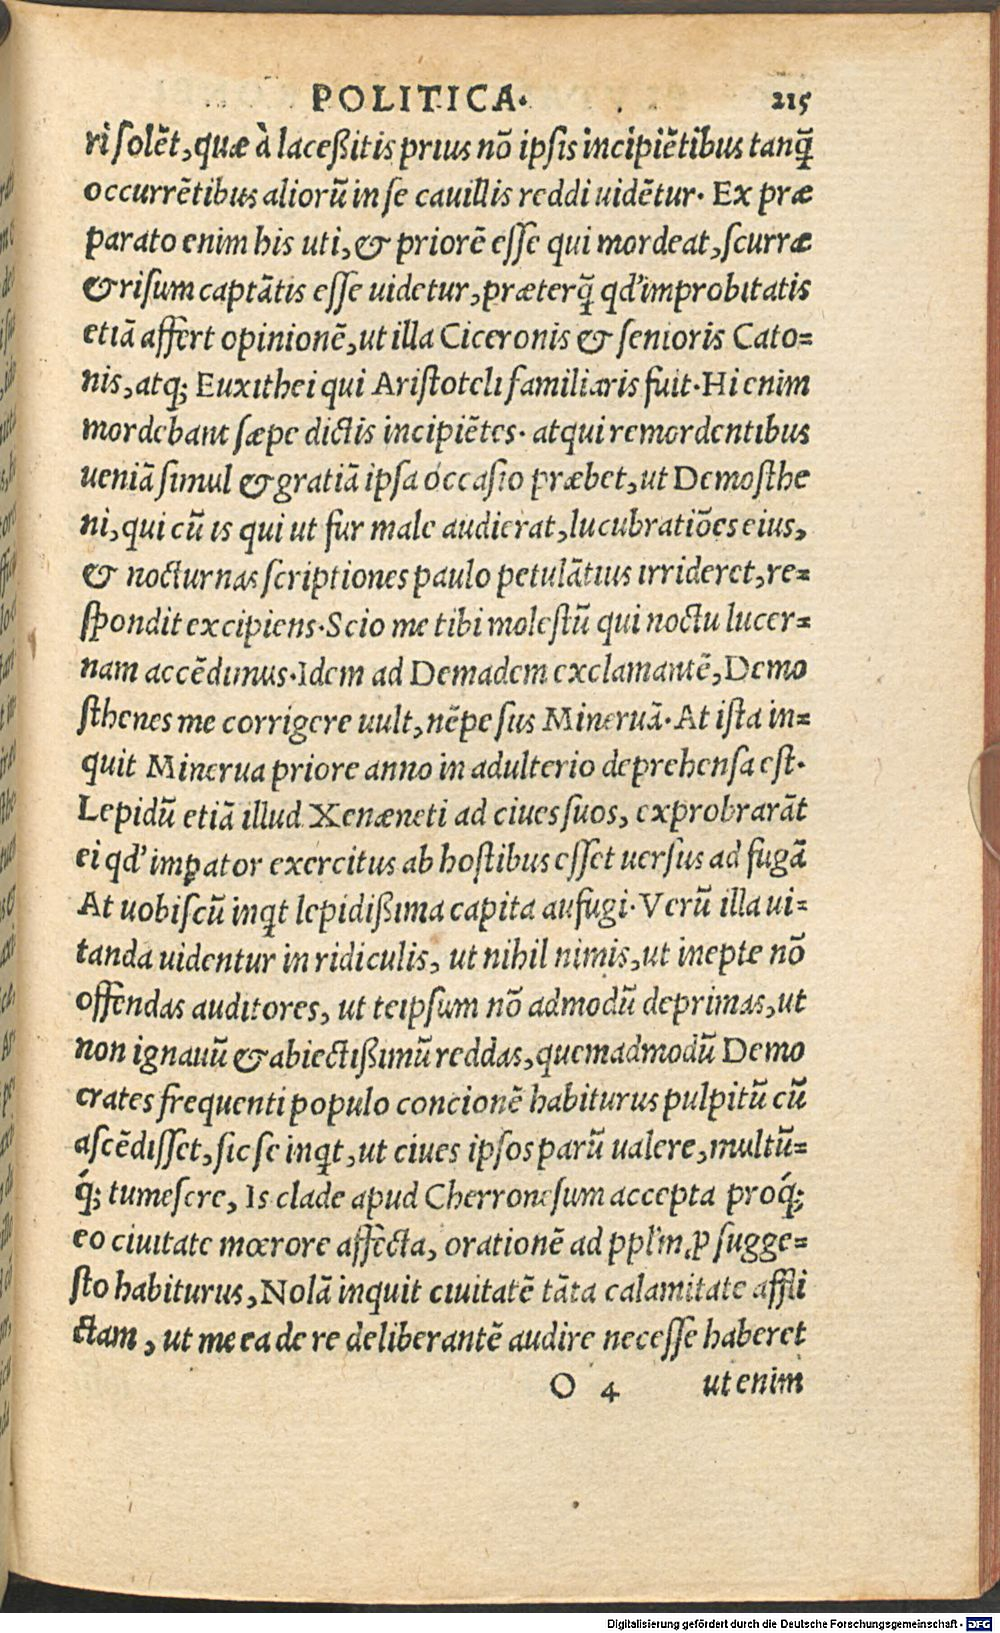 POLITICA. 215
ri solẽt, quæ à laceßitis prius nõ ipsis incipiẽtibus tanq̃
occurrẽtibus aliorũ in se cauillis reddi uidẽtur. Ex præ
parato enim his uti, & priorẽ esse qui mordeat, scurræ
& risum captãtis esse uidetur, præterq̃ qd' improbitatis
etiã affert opinionẽ, ut illa Ciceronis & senioris Cato=
nis, atq; Euxithei qui Aristoteli familiaris fuit. Hi enim
mordebant sæpe dictis incipiẽtes. atqui remordentibus
ueniã simul & gratiã ipsa occasio præbet, ut Demosthe
ni, qui cũ is qui ut fur male audierat, lucubratiões eius,
& nocturnas scriptiones paulo petulãtius irrideret, re=
spondit excipiens. Scio me tibi molestũ qui noctu lucer=
nam accẽdimus. Idem ad Demadem exclamantẽ, Demo
sthenes me corrigere uult, nẽpe sus Mineruã. At ista in=
quit Minerua priore anno in adulterio deprehensa est.
Lepidũ etiã illud Xenæneti ad ciues suos, exprobrarãt
ei qd' imꝑator exercitus ab hostibus esset uersus ad fugã
At uobiscũ inqt lepidißima capita aufugi. Verũ illa ui=
tanda uidentur in ridiculis, ut nihil nimis, ut inepte nõ
offendas auditores, ut teipsum nõ admodũ deprimas, ut
non ignauũ & abiectißimũ reddas, quemadmodũ Demo
crates frequenti populo concionẽ habiturus pulpitũ cũ
ascẽdisset, sic se inqt, ut ciues ipsos parũ ualere, multũ=
q́; tumesere, Is clade apud Cherronesum accepta proq́;
eo ciuitate mœrore affecta, orationẽ ad ppl'm ꝓ sugge=
sto habiturus, Nolã inquit ciuitatẽ tãta calamitate affli
ctam, ut me ea de re deliberantẽ audire necesse haberet
O 4 ut enim
Digitalisierung gefördert durch die Deutsche Forschungsgemeinschaft - DFG